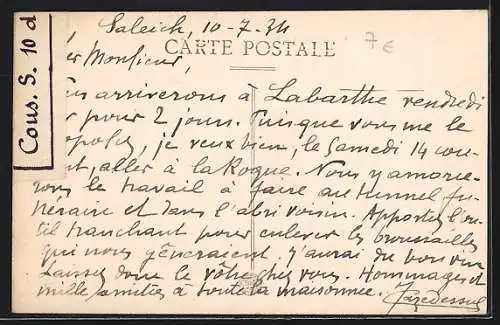 Saleich, 10-7.34
7€
CARTE POSTALE
Cous. S. 10 d
er Monsieur,
us arriverons à Labarthe vendredi
r pour 2 jours. Puisque vous me le
oposez, je veux bien, le Samedi 14 cou-
nt, aller à la Roque. Nous y amorce-
rons le travail à faire au tunnel fu-
néraire et dans l'abri voisin. Apportez l'ou-
til tranchant pour enlever les broussailles
qui nous gêneraient. J'aurai du bon vin
Laissez donc le vôtre chez vous. Hommages et
mille amitiés à toute la maisonnée.